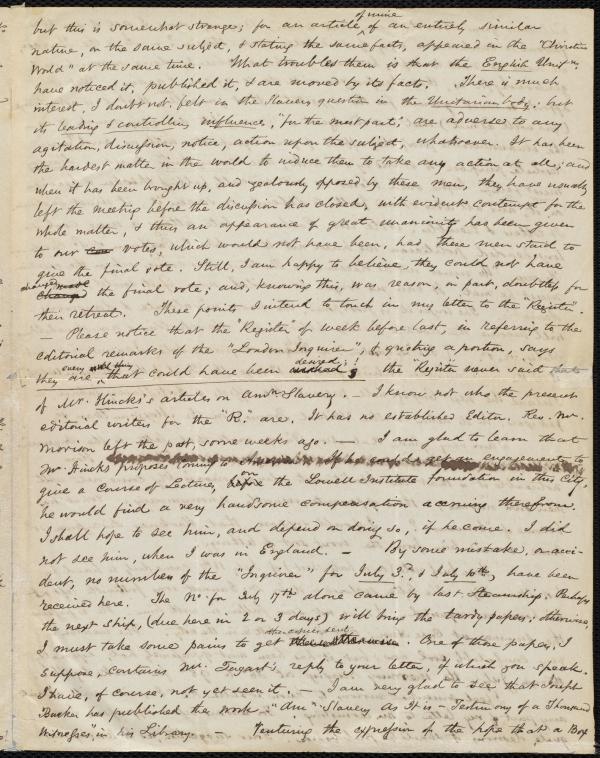 but this is somewhat strange; for an article of mine of an entirely similar
nature, on the same subject, & stating the same facts, appeared in the "Christian
World" at the same time. What troubles them is that the English Unitns
have noticed it, published it, & are moved by its facts. There is much
interest, I doubt not, felt in the Slavery question in the Unitarian body; but
its leading & controlling influences, "for the most part," are adverse to any
agitation, discussion, notice, action upon the subject, whatsoever. It has been
the hardest matter in the world to induce them to take any action at all; and
when it has been brought up, and zealously opposed by these men, they have usually
left the meeting before the discussion has closed, with evident contempt for the
whole matter, & thus an appearance of great unanimity has been given
to our votes, which would not have been, had these men staid to
give the final vote. Still, I am happy to believe, they could not have
changed the final vote; and, knowing this, was reason, in part, doubtless for
their retreat. These points I intend to touch in my letter to the "Register".
— Please notice that the "Register" of week before last, in referring to the
editorial remarks of the "London Inquirer", & quoting a portion, says
they are every thing that could have been desired; the "Register" never said
of Mr. Hincks's articles on Amn Slavery. — I know not who the present
editorial writers for the "R." are. It has no established Editor. Rev. Mr.
Morison left the post, some weeks ago. — I am glad to learn that
Mr Hincks proposes coming to America. If he could get an engagement to
give a course of Lectures, on the Lowell Institute foundation in this City,
he would find a very handsome compensation accruing therefrom.
I shall hope to see him, and depend on doing so, if he come. I did
not see him, when I was in England. — By some mistake, or acci-
dent, no numbers of the "Inquirer" for July 3d, & July 10th, have been
received here. The No. for July 17th alone came by last Steamship. Perhaps
the next ship, (due here in 2 or 3 days) will bring the tardy papers; otherwise,
I must take some pains to get the copies sent. One of those papers, I
suppose, contains Mr. Tagart's reply to your letter, of which you speak.
I have, of course, not yet seen it. — I am very glad to see that
has published the work — "Amn Slavery As It is — Testimony of a Thousand
Witnesses, in his Library. — Venturing the expression of the hope that a Box